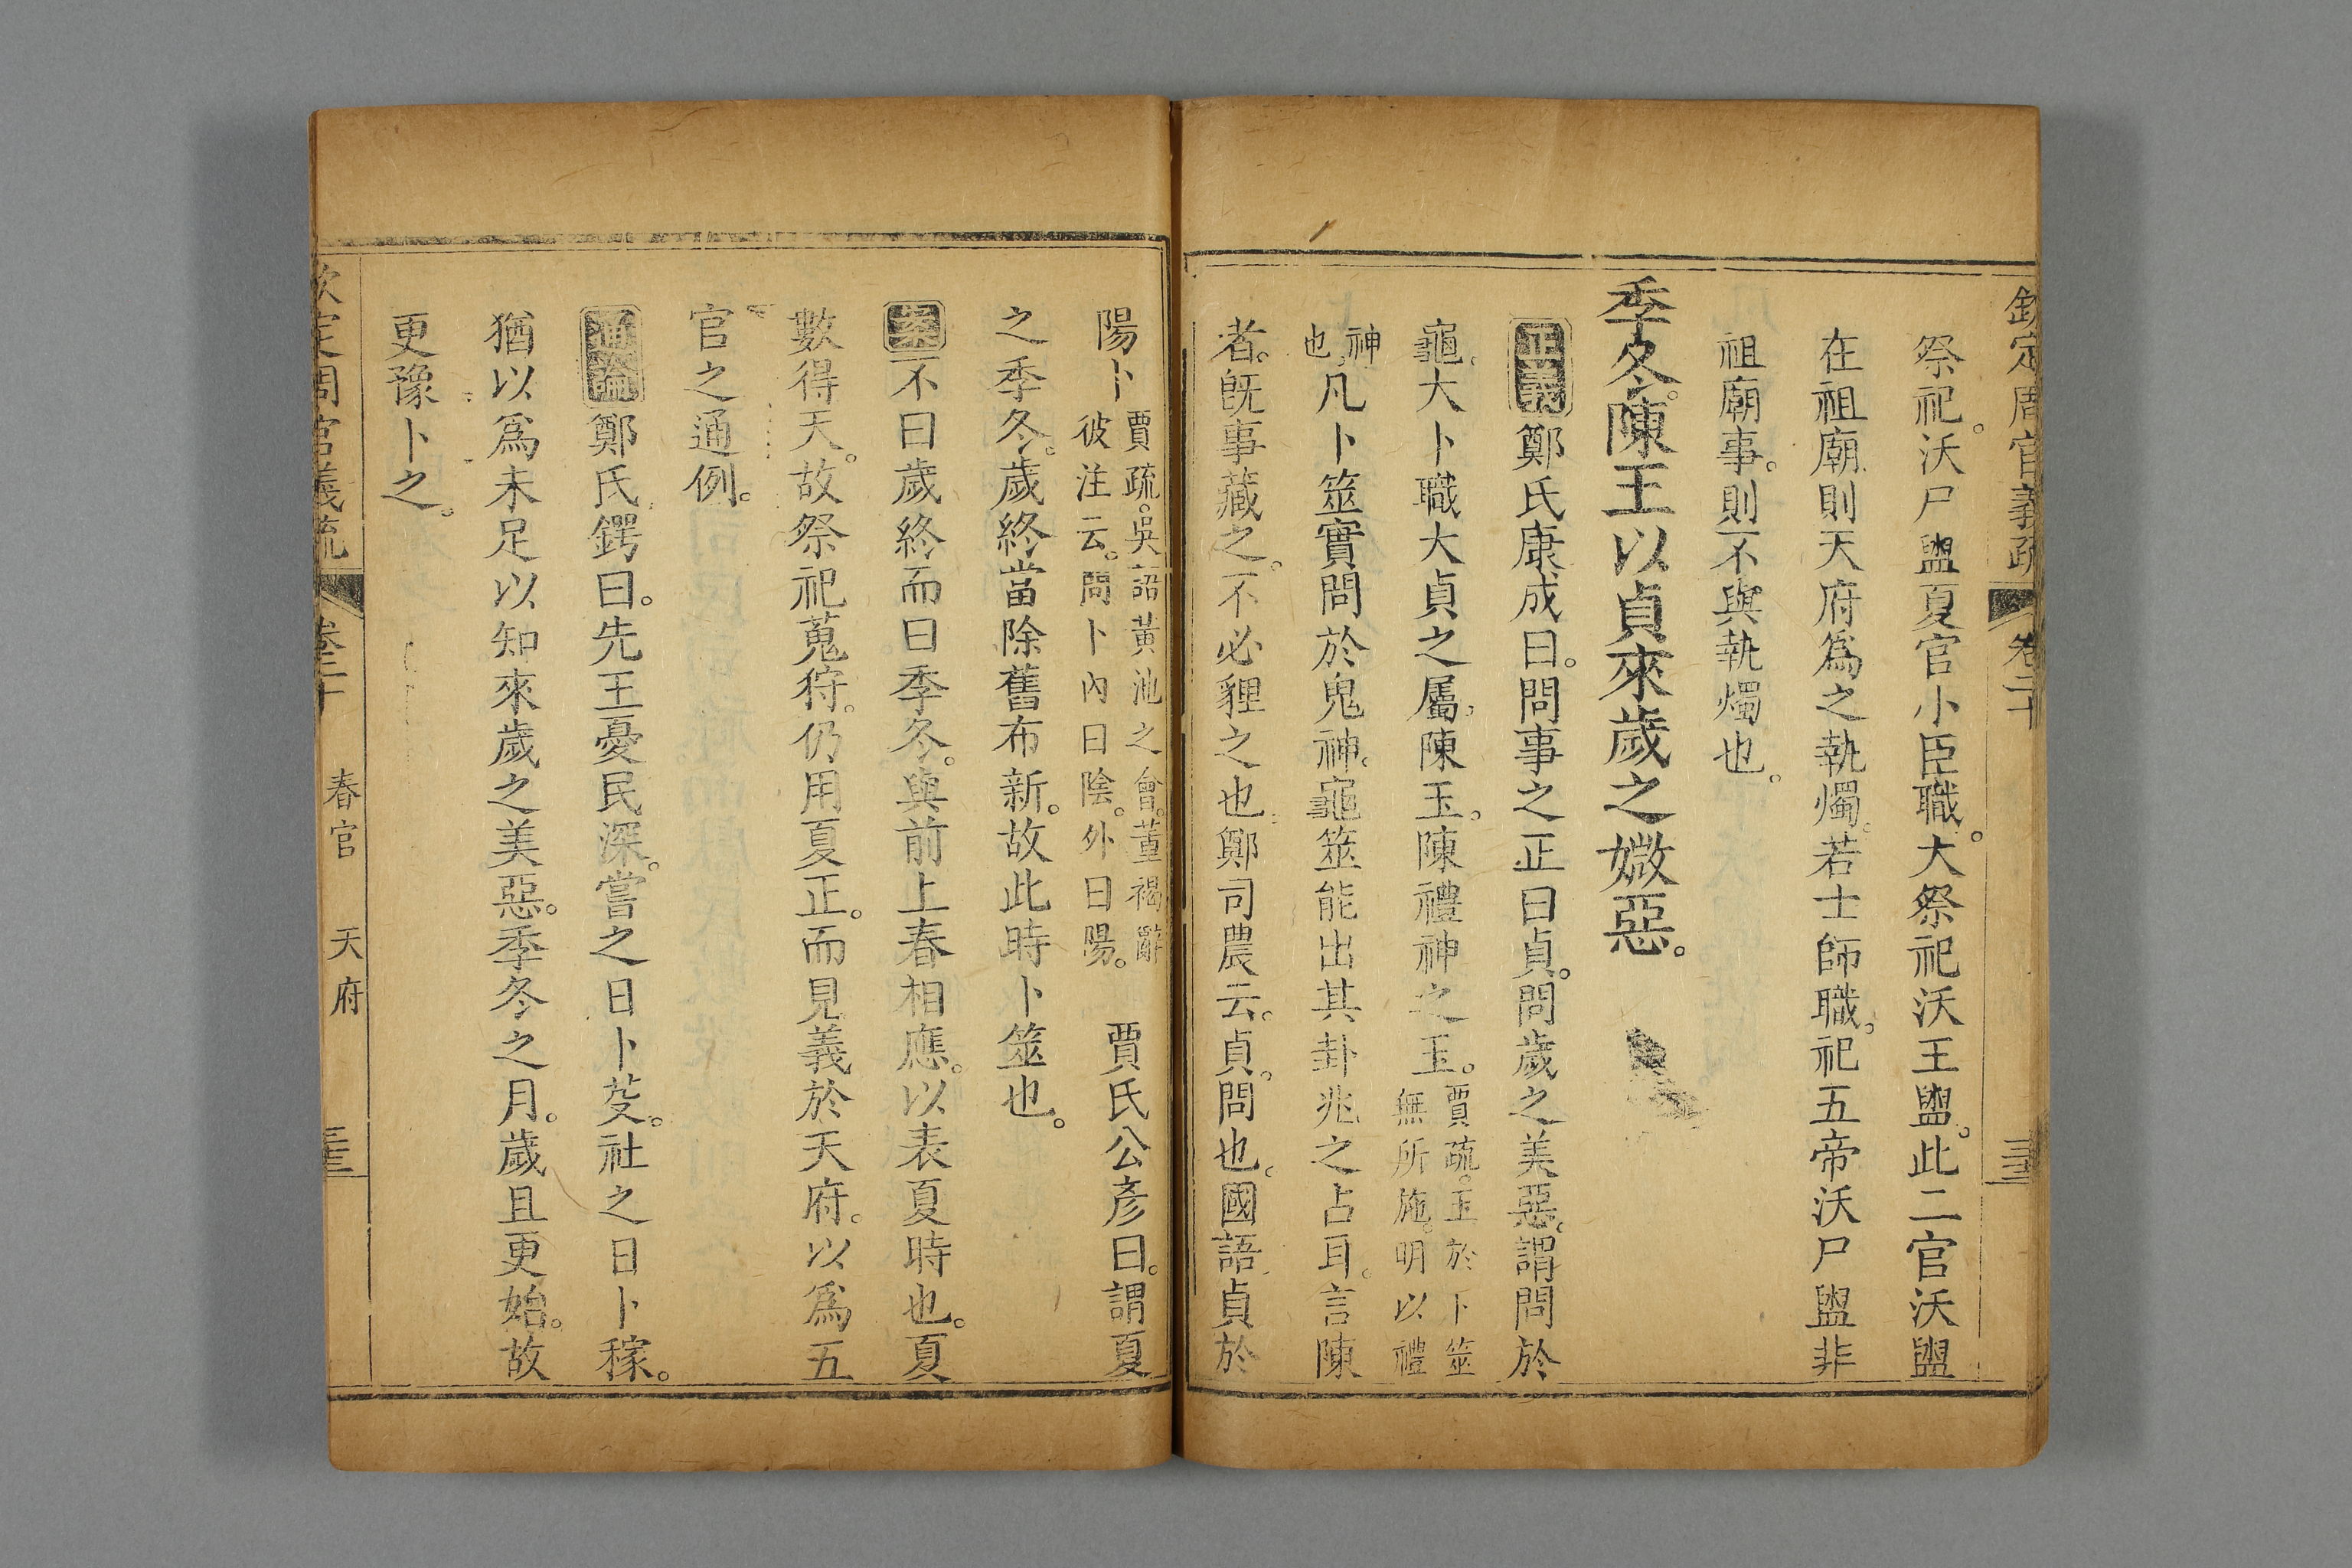 欽定周官義疏 卷二十
祭祀。沃尸盥夏官小臣職。大祭祀沃王盥。此二官沃盥
在祖廟。則天府爲之執燭。若士師職。祀五帝沃尸盥非
祖廟事。則不與執燭也。
季冬。陳玉以貞來歲之媺惡。
正義鄭氏康成曰。問事之正曰貞。問歲之美惡。謂問於
龜。大卜職大貞之屬。陳玉。陳禮神之玉。賈疏。玉於卜筮
無所施。明以禮
神
也。凡卜筮實問於鬼神。龜筮能出其卦兆之占耳。言陳
者。旣事藏之。不必貍之也。鄭司農云。貞。問也。國語貞於
陽卜賈疏。吳語黃池之會。董褐辭
彼注云。問卜內曰陰。外曰陽。賈氏公彥曰。謂夏
之季冬。歲終當除舊布新。故此時卜筮也。
案不曰歲終而曰季冬。與前上春相應。以表夏時也。夏
數得天。故祭祀蒐狩。仍用夏正。而見義於天府。以爲五
官之通例。
通論鄭氏鍔曰。先王憂民深。嘗之日卜芟。社之日卜稼。
猶以爲未足以知來歲之美惡。季冬之月。歲且更始。故
更豫卜之。
欽定周官義疏 卷二十 春官 天府